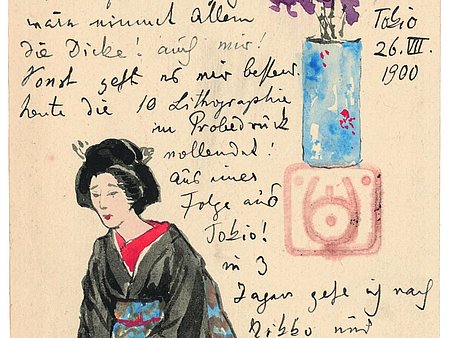 wäre nimmt Allem
die Dicke! auf mir!
Sonst geht es mir besser.
heute die 10 Lithographie
im Probedruck
vollendet!
aus einer
Folge aus
Tokio!
in 3
Tagen gehe ich nach
Nikko und
Tokio
26. VII.
1900